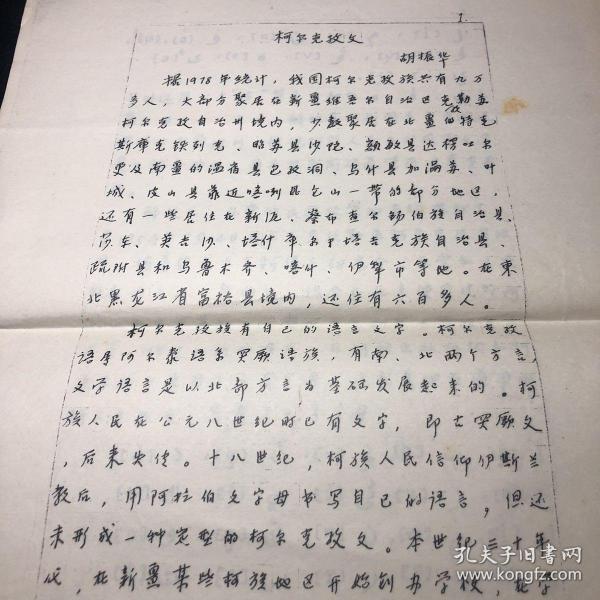 1.
柯尔克孜文
胡振华
据1978年统计，我国柯尔克孜族共有九万
多人，大部分聚居在新疆维吾尔自治区克孜勒苏
柯尔克孜自治州境内，少数聚居在北疆伯特克
斯库克铁列克、昭苏县沙陀、额敏县达楞吐尔
更及南疆的温宿县包孜洞、乌什县加满苏、叶
城、皮山县靠近喀喇昆仑山一带的部分地区，
还有一些居住在新源、察布查尔锡伯族自治县、
莎车、英吉沙、塔什库尔干塔吉克族自治县、
疏附县和乌鲁木齐、喀什、伊犁市等地。在東
北黑龙江省富裕县境内，还住有六百多人。
柯尔克孜族有自己的语言文字。柯尔克孜
语属阿尔泰语系突厥语族，有南、北两个方言，
文学语言是以北部方言为基础发展起来的。柯
族人民在公元八世纪时已有文字，即古突厥文
，后来失传。十八世纪，柯族人民信仰伊斯兰
教后，用阿拉伯文字母书写自己的语言，但还
未形成一种定型的柯尔克孜文。本世纪三十年
代，在新疆某些柯族地区开始创办学校，在学
孔夫子旧书网
www.kongfz.com